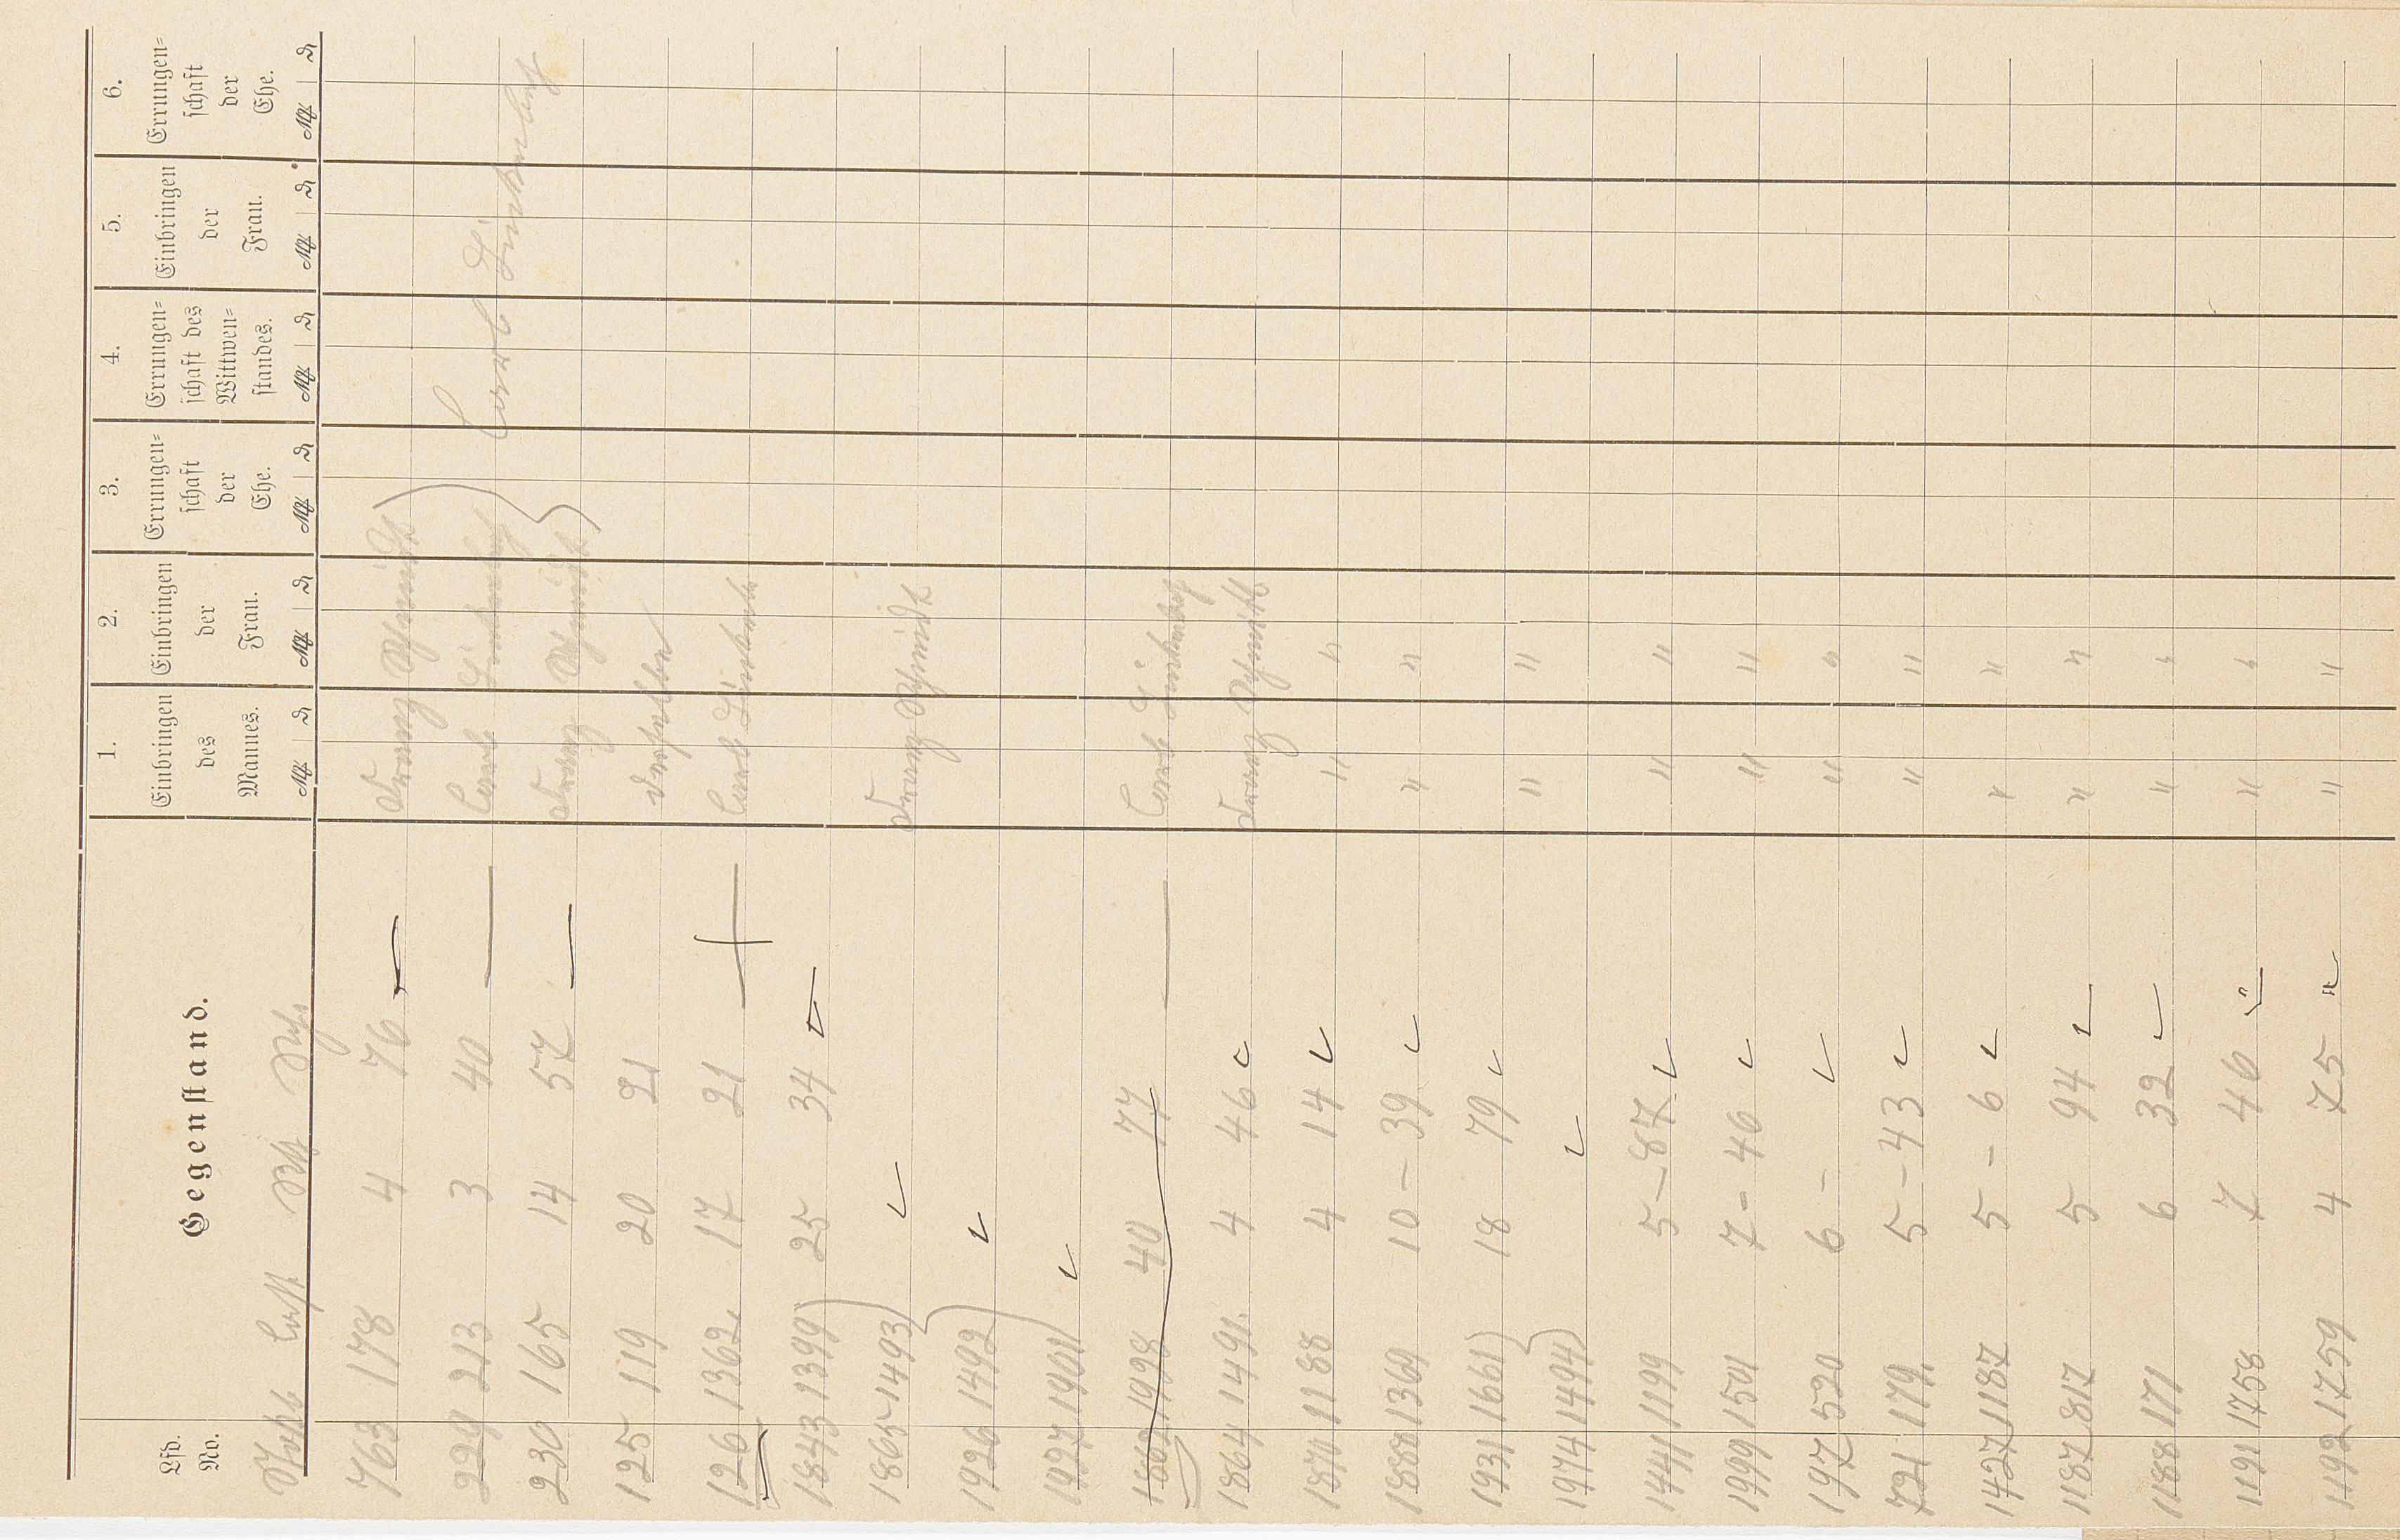 Lfd. No. Gegenstand. 1. Einbringen des Mannes. 2. Einbringen der Frau. 3. Errungen= schaft der Ehe. 4. Errungen= schaft des Wittwen= standes. 5. Einbringen der Frau. 6. Errungen= schaft der Ehe.
ℳ ₰ ℳ ₰ ℳ ₰ ℳ ₰ ℳ ₰ ℳ ₰
763 178 4 76 Franz Schmidt
229 213 3 40 Carl
230 165 14 57 Franz Schmidt
125 119 20 21 derselbe
126 1362 17 21 Carl
1843 1399) 25 34
1865 1493) Franz Schmidt
1926 1492)
1927 1901)
1862 1998 40 77 Carl
1864 1491. 4 46 Franz Schmidt
1870 1188 4 14 " "
1888 1369 10 – 39 " "
1931 1661) 18 79 " "
1974 1494)
1441 1199 5 – 87 " "
1999 1501 7 – 46 " "
197 520 6 – " "
721 179. 5 – 43 " "
1427 1187 5 – 6 " "
1187 817 5 94 " "
1188 171 6 32 " "
1191 1758 7 46 " "
1192 1759 4 75 " "